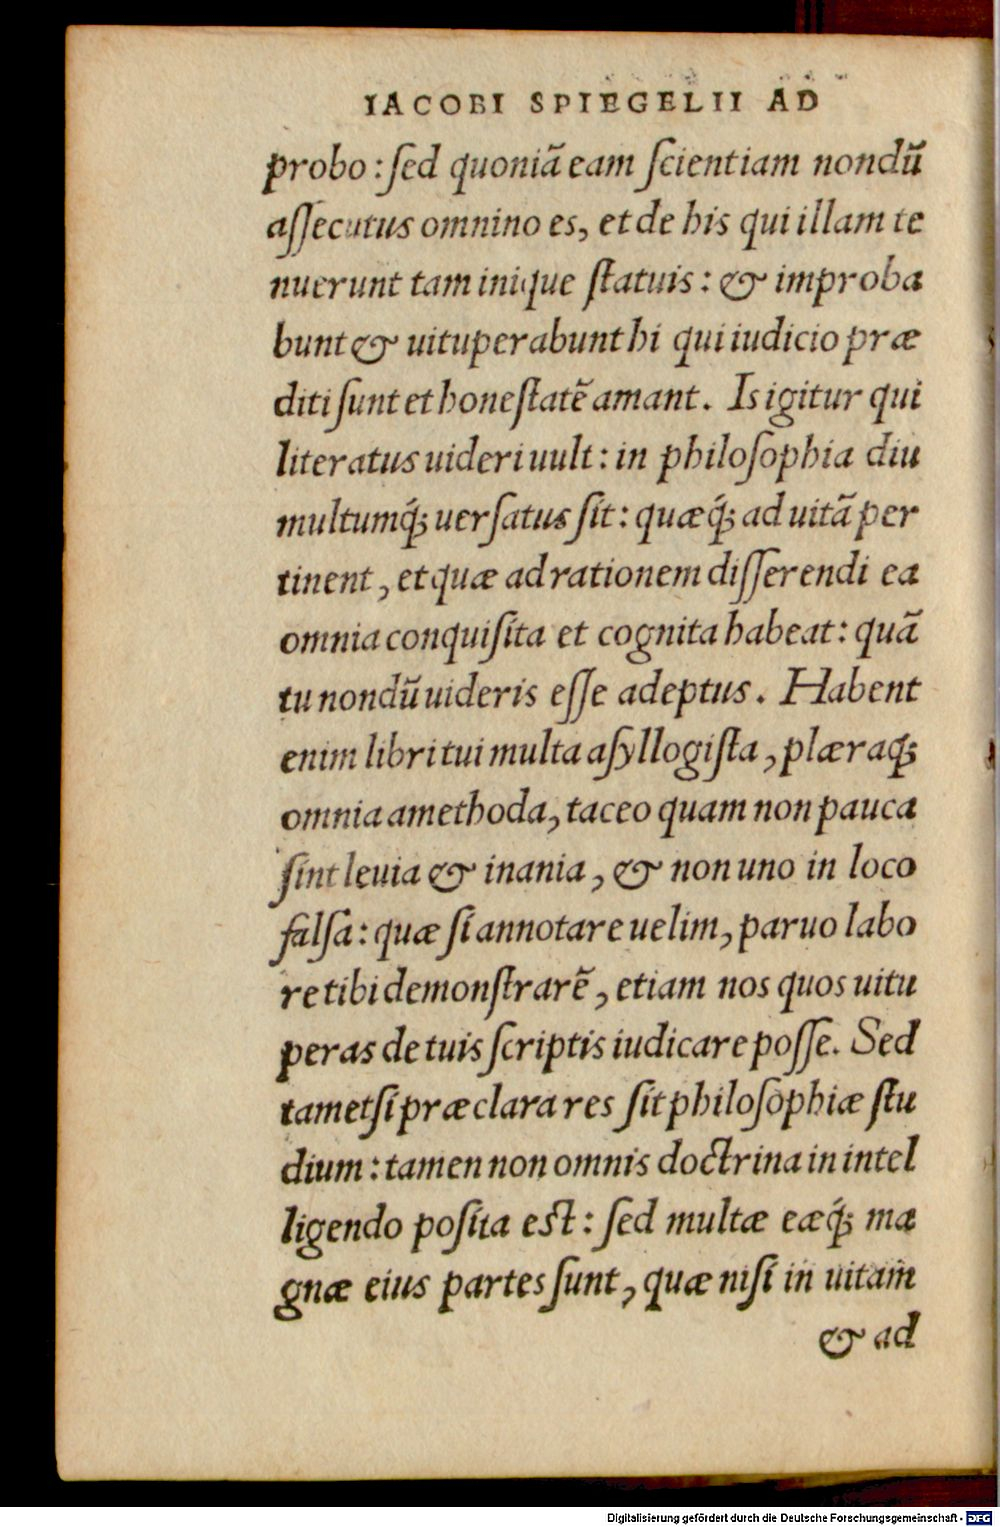 IACOBI SPIEGELII AD
probo : ſed quoniã eam ſcientiam nondũ
aſſecutus omnino es, et de his qui illam te
nuerunt tam inique ſtatuis : & improba
bunt & uituperabunt hi qui iudicio præ
diti ſunt et honeſtatẽ amant. Is igitur qui
literatus uideri uult : in philoſophia diu
multumq́; uerſatus ſit : quæq́; ad uitã per
tinent, et quæ ad rationem diſſerendi ea
omnia conquiſita et cognita habeat : quã
tu nondũ uideris eſſe adeptus. Habent
enim libri tui multa aſyllogiſta, plæraq;
omnia amethoda, taceo quam non pauca
ſint leuia & inania, & non uno in loco
falſa : quæ ſi annotare uelim, paruo labo
re tibi demonſtrarẽ, etiam nos quos uitu
peras de tuis ſcriptis iudicare poſſe. Sed
tametſi præclara res ſit philoſophiæ ſtu
dium : tamen non omnis doctrina in intel
ligendo poſita eſt : ſed multæ eæq́; ma
gnæ eius partes ſunt, quæ niſi in uitam
& ad
Digitalisierung gefördert durch die Deutsche Forschungsgemeinschaft - DFG